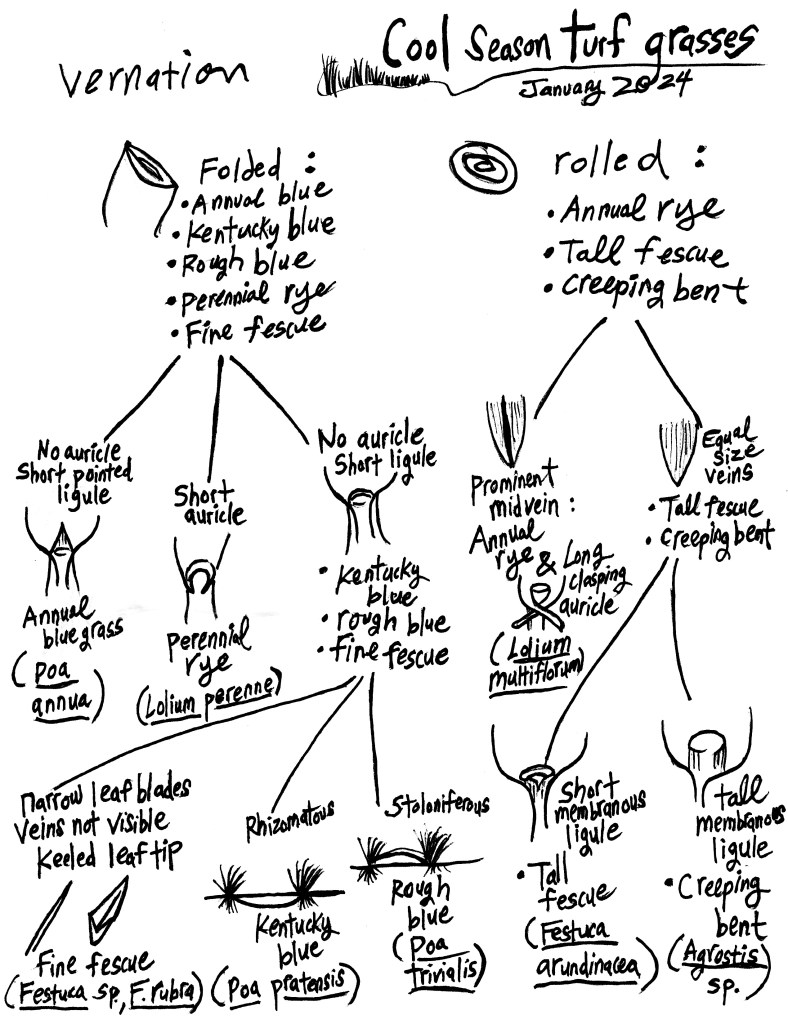 Cool Season turf grasses
January 2024
vernation
Folded :
• Annual blue
• Kentucky blue
• Rough blue
• Perennial rye
• Fine fescue
rolled :
• Annual rye
• Tall fescue
• Creeping bent
No auricle
Short pointed
ligule
Annual
bluegrass
(Poa
annua)
Short
auricle
Perennial
rye
(Lolium perenne)
No auricle
Short ligule
• Kentucky
blue
• rough blue
• Fine fescue
Prominent
midvein :
Annual
rye
& Long
clasping
auricle
(Lolium
multiflorum)
Equal
size
veins
• Tall fescue
• Creeping bent
narrow leaf blades
Veins not visible
Keeled leaf tip
Fine fescue
(Festuca sp., F. rubra)
Rhizomatous
Kentucky
blue
(Poa pratensis)
Stoloniferous
Rough
blue
(Poa
trivialis)
Short
membranous
ligule
• Tall
fescue
(Festuca
arundinacea)
tall
membranous
ligule
• Creeping
bent
(Agrostis
sp.)